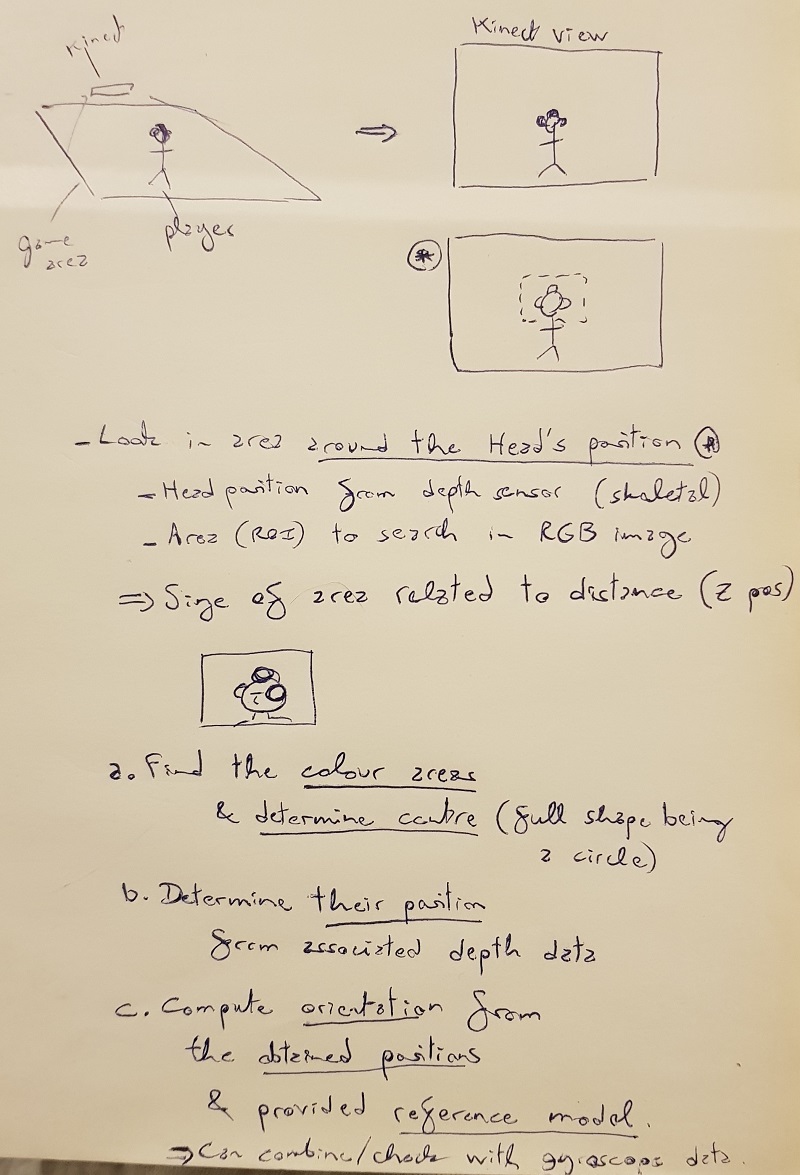 Kinect
Kinect view
⇒
game
area
players
*
- Look in area around the Head's position *
- Head position from depth sensor (skeletal)
- Area (ROI) to search in RGB image
⇒ Size of area related to distance (Z pos)
a. Find the colour areas
& determine centre (full shape being
a circle)
b. Determine their position
from associated depth data
c. Compute orientation from
the obtained positions
& provided reference model.
⇒ Can combine/check with gyroscope data.